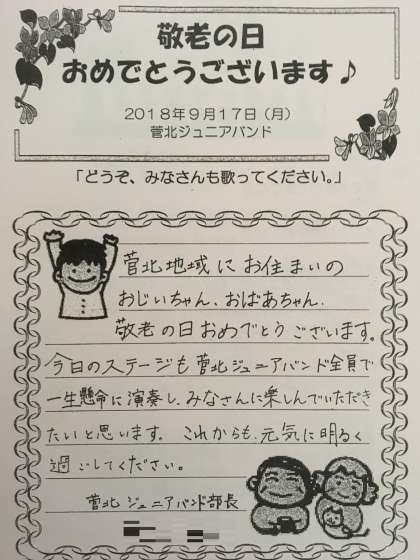 敬老の日
おめでとうございます♪
2018年9月17日(月)
菅北ジュニアバンド
「どうぞ、みなさんも歌ってください。」
菅北地域にお住まいの
おじいちゃん、おばあちゃん、
敬老の日おめでとうございます。
今日のステージも菅北ジュニアバンド全員で
一生懸命に演奏し、みなさんに楽しんでいただき
たいと思います。これからも、元気に明るく
過ごしてください。
菅北ジュニアバンド部長